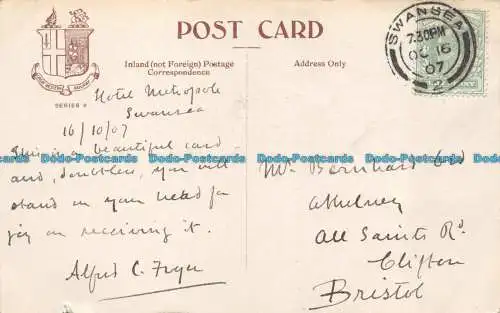 POST CARD
Inland (not Foreign) Postage
Correspondence
Address Only
SERIES
SWANSEA
7.30PM
OC 16
07
2
Hotel Metropole
Swansea
16/10/07
This is a beautiful card
and, doubtless, you will
stand on your head for
joy on receiving it.
Alfred C. Fryer
Mr. Bernhard
All Saints Rd.
Clifton
Bristol
Dodo-Postcards Dodo-Postcards Dodo-Postcards Dodo-Postcards Dodo-Postcards